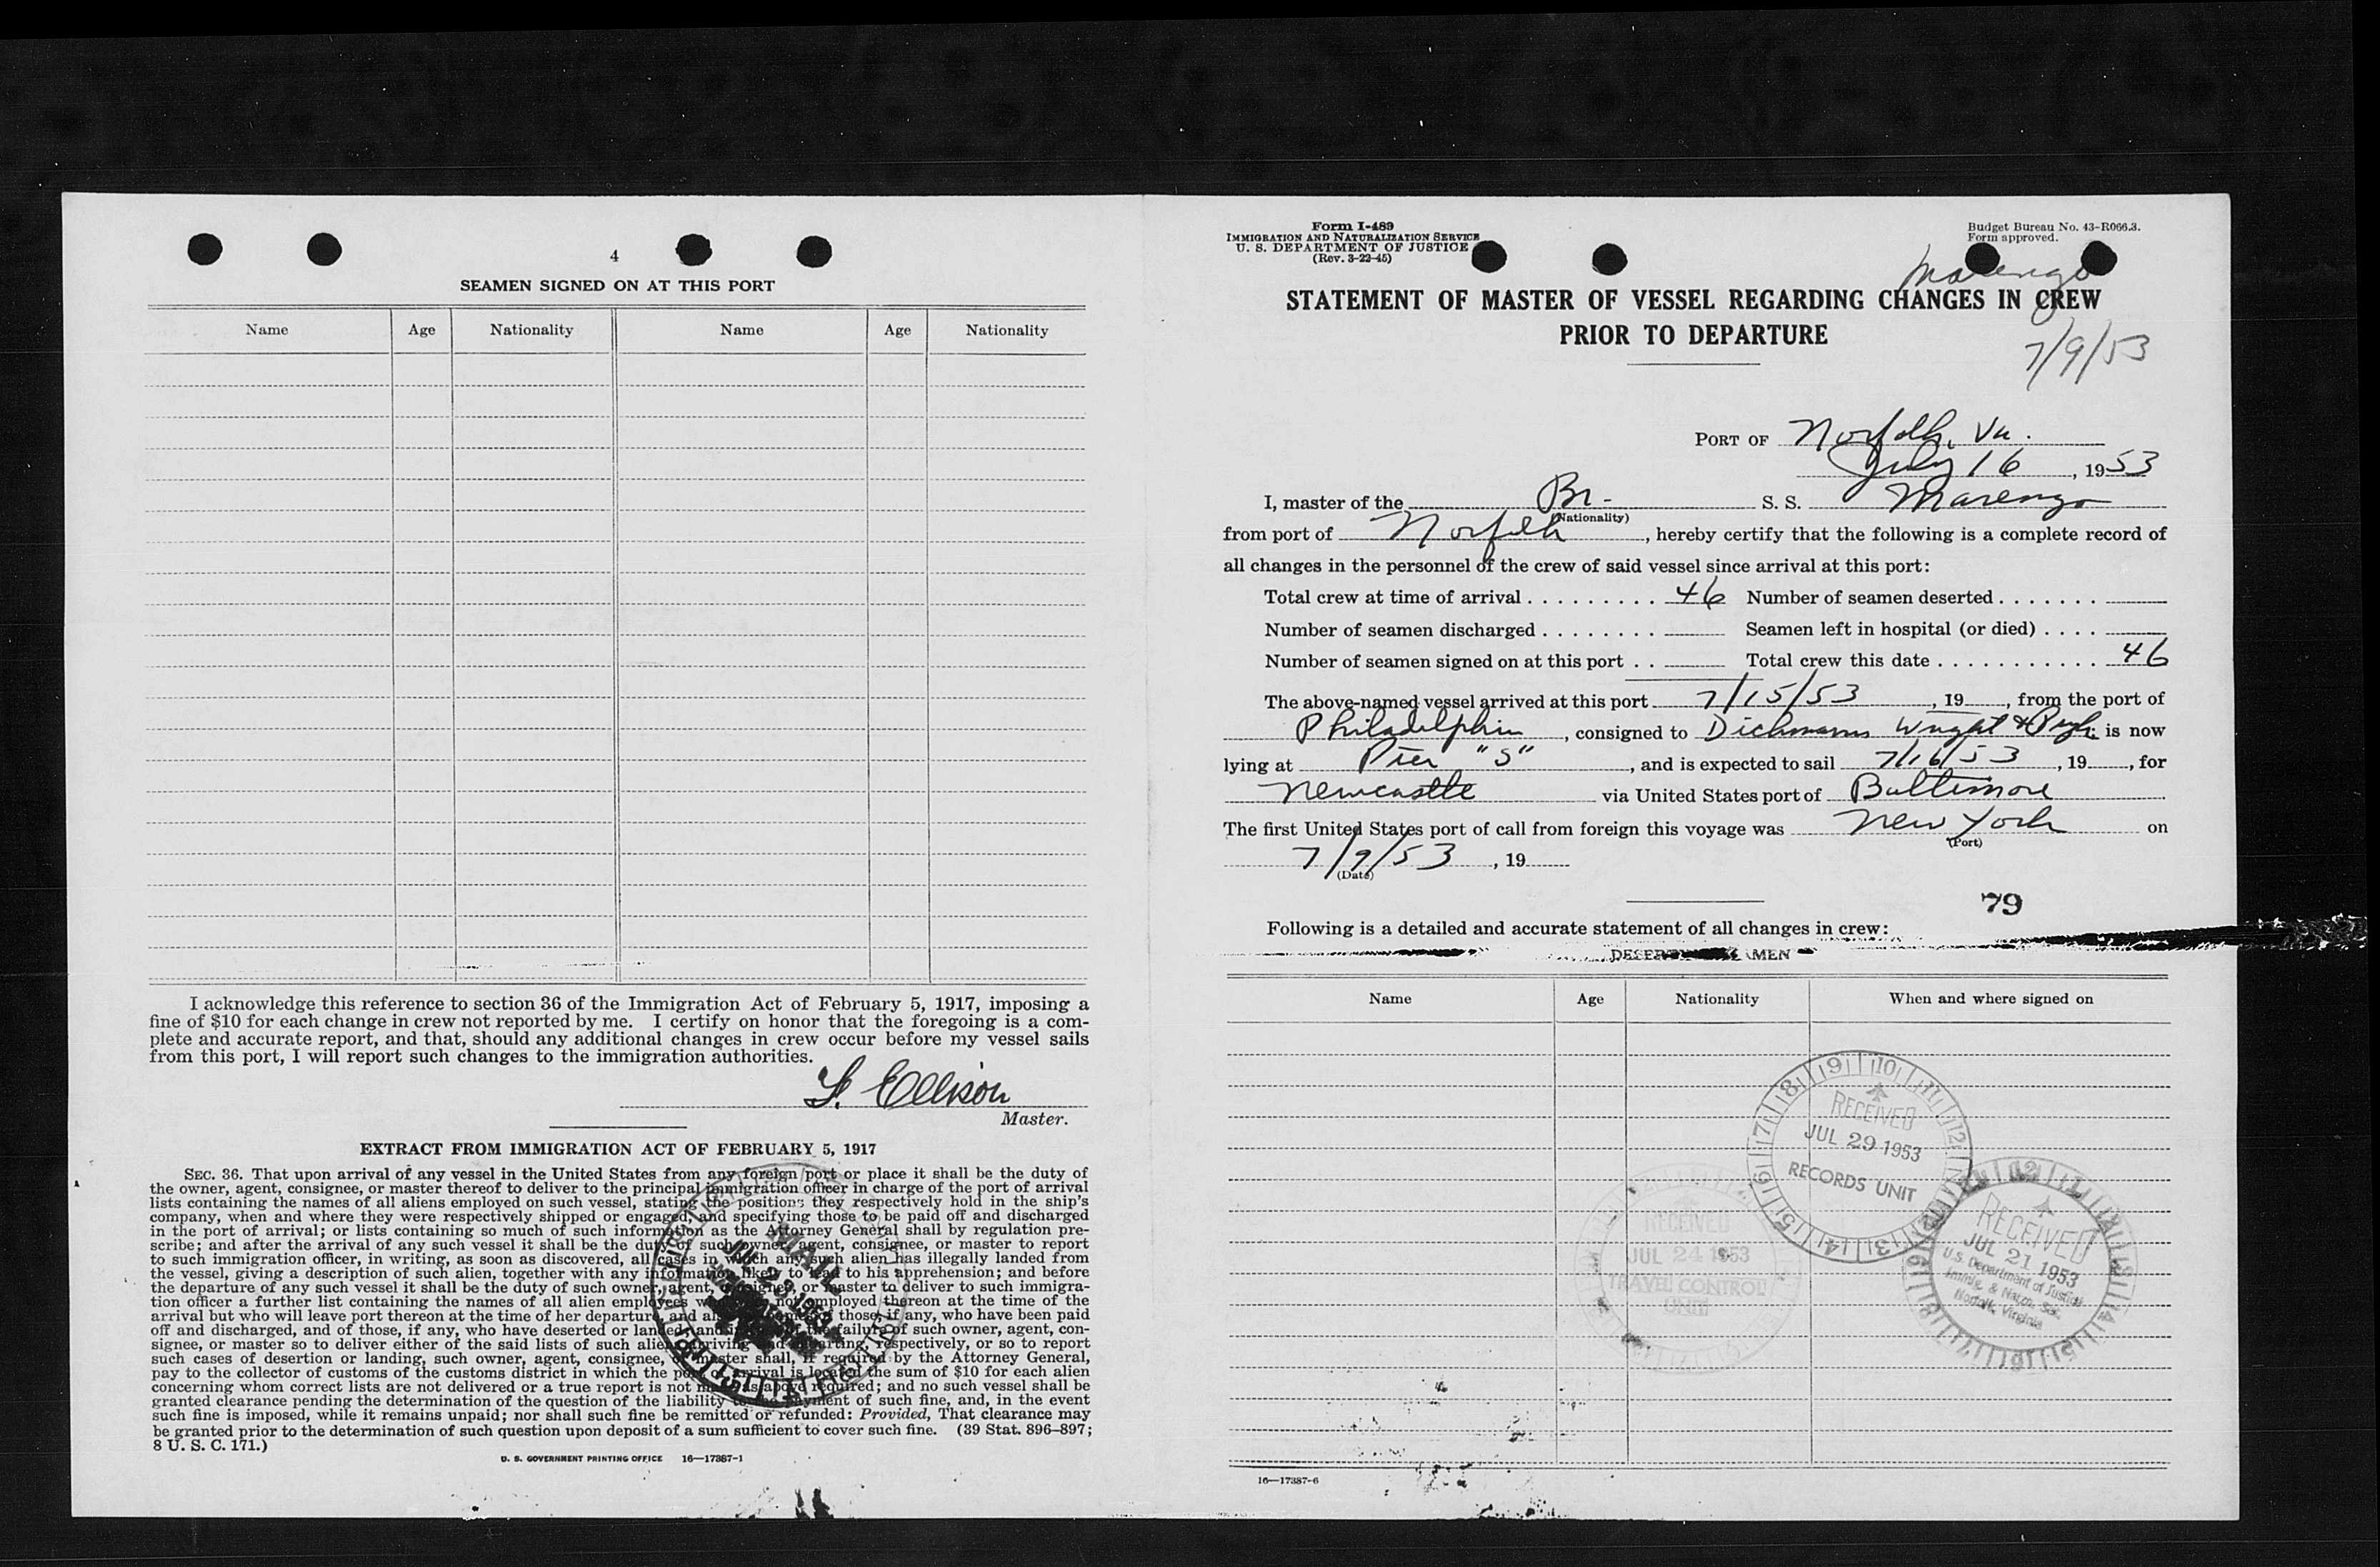 4
SEAMEN SIGNED ON AT THIS PORT
Name Age Nationality Name Age Nationality
I acknowledge this reference to section 36 of the Immigration Act of February 5, 1917, imposing a
fine of $10 for each change in crew not reported by me. I certify on honor that the foregoing is a com-
plete and accurate report, and that, should any additional changes in crew occur before my vessel sails
from this port, I will report such changes to the immigration authorities.
Ellison
Master.
EXTRACT FROM IMMIGRATION ACT OF FEBRUARY 5, 1917
SEC. 36. That upon arrival of any vessel in the United States from any foreign port or place it shall be the duty of
the owner, agent, consignee, or master thereof to deliver to the principal immigration officer in charge of the port of arrival
lists containing the names of all aliens employed on such vessel, stating the positions they respectively hold in the ship's
company, when and where they were respectively shipped or engaged, and specifying those to be paid off and discharged
in the port of arrival; or lists containing so much of such information as the Attorney General shall by regulation pre-
scribe; and after the arrival of any such vessel it shall be the duty of such owner, agent, consignee, or master to report
to such immigration officer, in writing, as soon as discovered, all cases in which any such alien has illegally landed from
the vessel, giving a description of such alien, together with any information likely to lead to his apprehension; and before
the departure of any such vessel it shall be the duty of such owner, agent, consignee, or master to deliver to such immigra-
tion officer a further list containing the names of all alien employees who were not employed thereon at the time of the
arrival but who will leave port thereon at the time of her departure, and also the names of those, if any, who have been paid
off and discharged, and of those, if any, who have deserted or landed; and in case of the failure of such owner, agent, con-
signee, or master so to deliver either of the said lists of such aliens arriving and departing, respectively, or so to report
such cases of desertion or landing, such owner, agent, consignee, or master shall, if required by the Attorney General,
pay to the collector of customs of the customs district in which the port of arrival is located the sum of $10 for each alien
concerning whom correct lists are not delivered or a true report is not made as above required; and no such vessel shall be
granted clearance pending the determination of the question of the liability to the payment of such fine, and, in the event
such fine is imposed, while it remains unpaid; nor shall such fine be remitted or refunded: Provided, That clearance may
be granted prior to the determination of such question upon deposit of a sum sufficient to cover such fine. (39 Stat. 896–897;
8 U. S. C. 171.)
U. S. GOVERNMENT PRINTING OFFICE 16—17387-1
MAIL
Form I-489
IMMIGRATION AND NATURALIZATION SERVICE
U. S. DEPARTMENT OF JUSTICE
(Rev. 3-22-45)
Budget Bureau No. 43-R066.3.
Form approved.
Marengo
STATEMENT OF MASTER OF VESSEL REGARDING CHANGES IN CREW
PRIOR TO DEPARTURE
7/9/53
PORT OF Norfolk, Va.
July 16, 1953
I, master of the Br- S. S. Marengo
(Nationality)
from port of Norfolk, hereby certify that the following is a complete record of
all changes in the personnel of the crew of said vessel since arrival at this port:
Total crew at time of arrival . . . . . . . . . 46 Number of seamen deserted . . . . . . .
Number of seamen discharged . . . . . . . . Seamen left in hospital (or died) . . . .
Number of seamen signed on at this port . . Total crew this date . . . . . . . . . . . 46
The above-named vessel arrived at this port 7/15/53, 19, from the port of
Philadelphia, consigned to Dichmann Wright & Pugh is now
lying at Pier "S", and is expected to sail 7/16/53, 19, for
Newcastle via United States port of Baltimore
The first United States port of call from foreign this voyage was New York on
(Port)
7/9/53, 19
(Date)
79
Following is a detailed and accurate statement of all changes in crew:
Name Age Nationality When and where signed on
RECEIVED
JUL 29 1953
RECORDS UNIT
RECEIVED
JUL 24 1953
TRAVEL CONTROL
UNIT
RECEIVED
JUL 21 1953
U.S. Department of Justice
Immig. & Natzn. Ser.
Norfolk, Virginia
16—17387-6